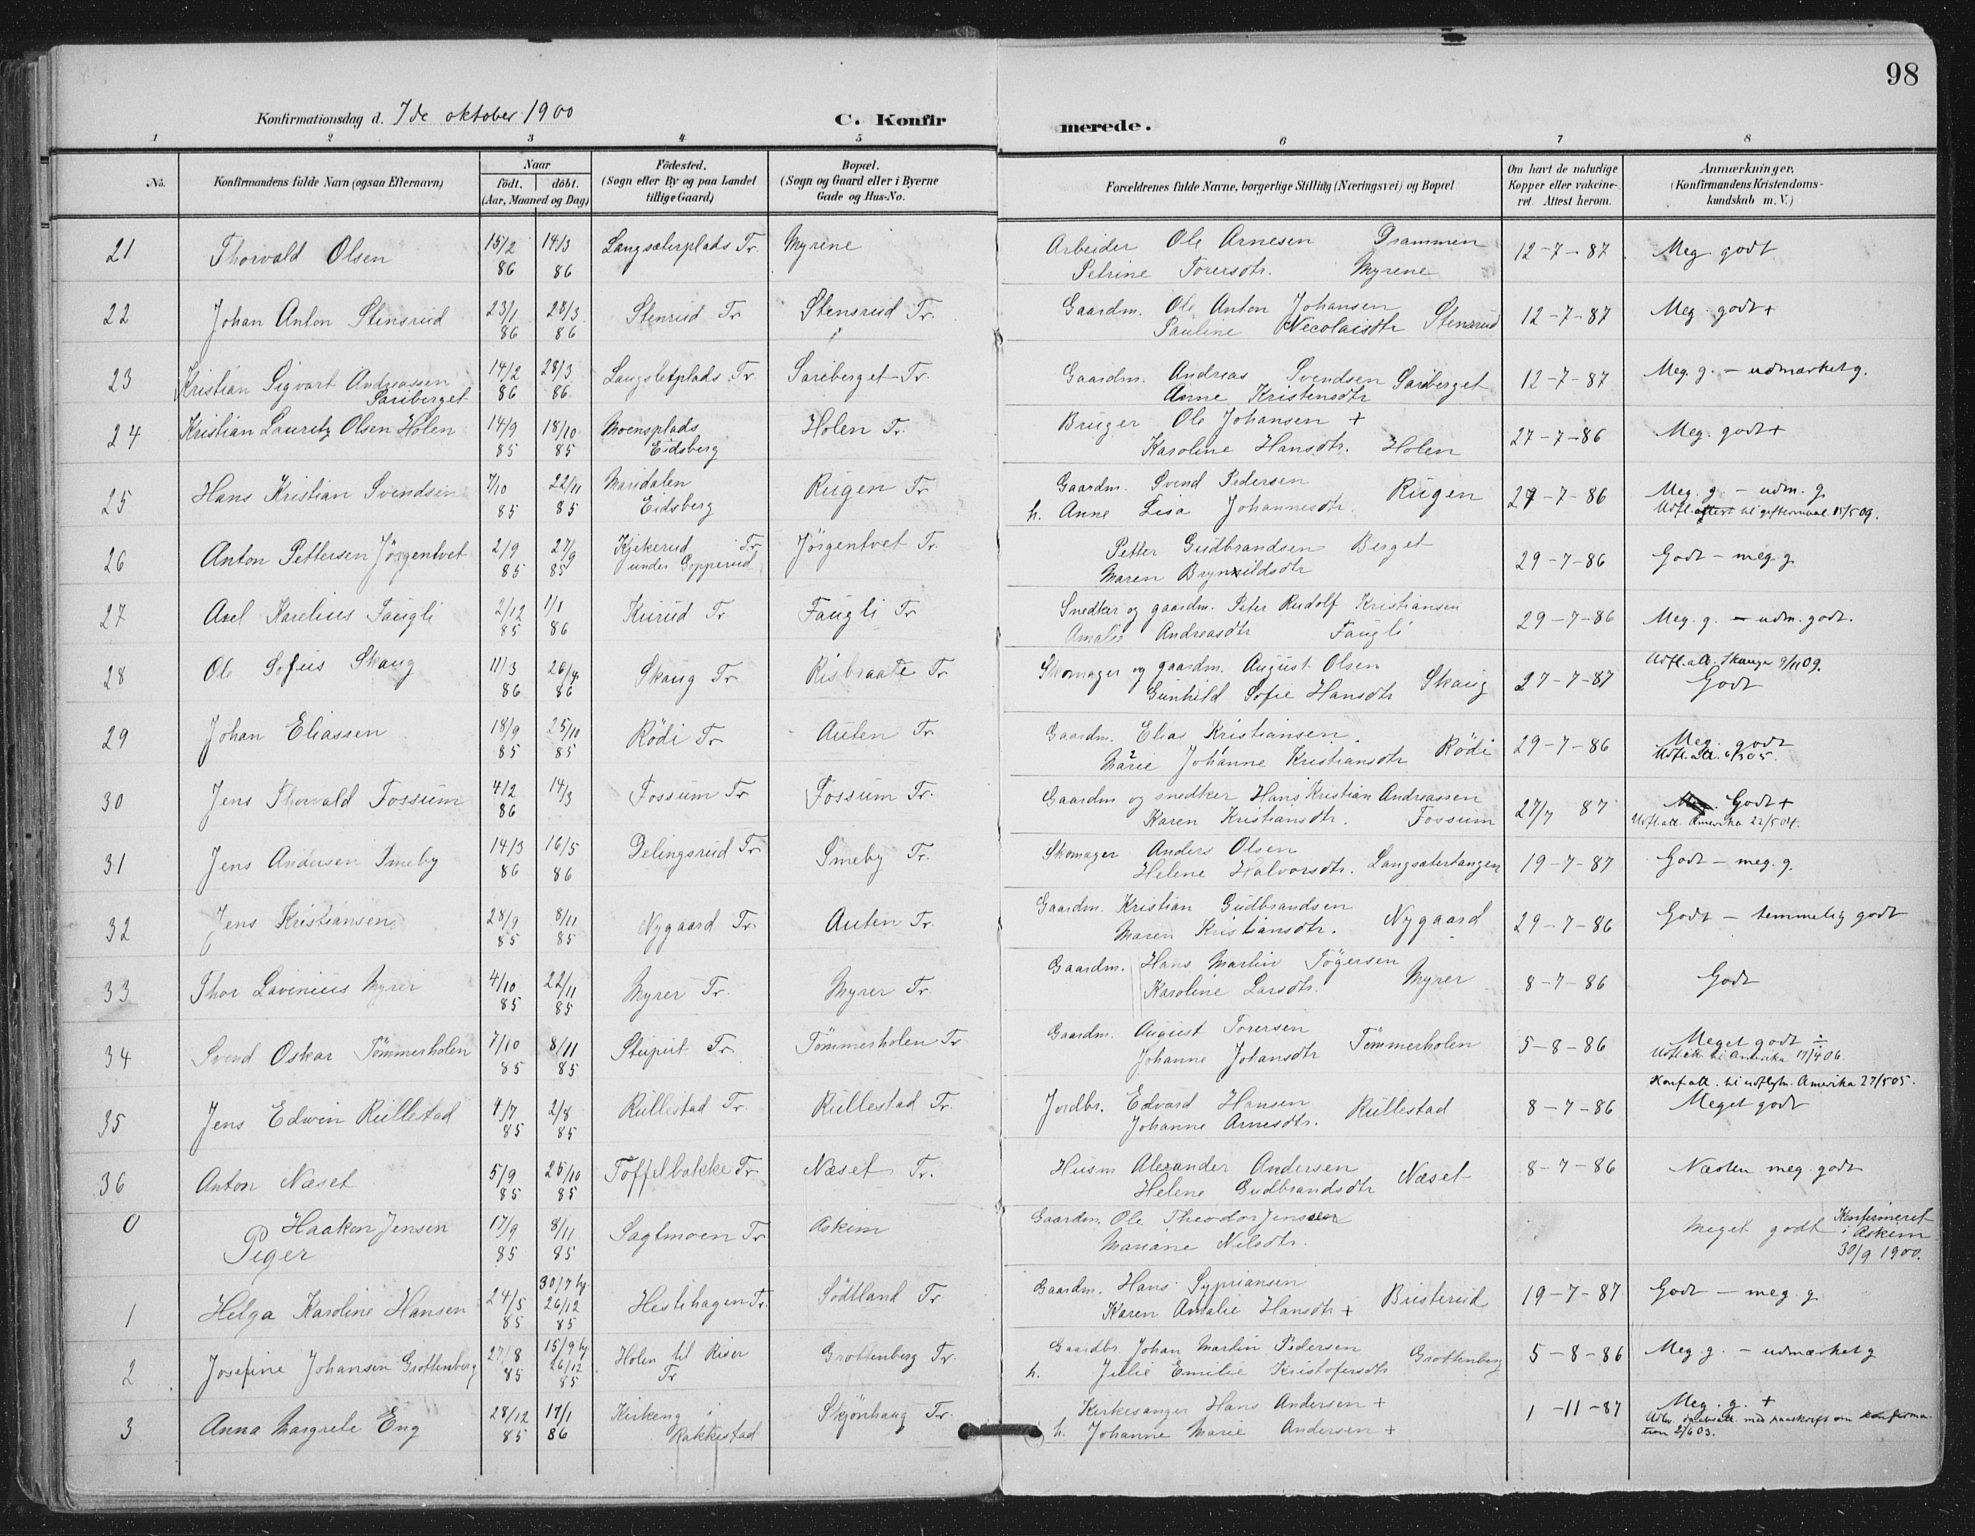 98
Konfirmationsdag d. 7de oktober 1900 C. Konfirmerede.
1 2 3 4 5 6 7 8
No. Konfirmandens fulde Navn (ogsaa Efternavn) Naar födt. döbt. (Aar, Maaned og Dag) Födested. (Sogn eller By og paa Landet tillige Gaard) Bopæl. (Sogn og Gaard eller i Byerne Gade og Hus-No. Forældrenes fulde Navne, borgerlige Stilling (Næringsvei) og Bopæl Om havt de naturlige Kopper eller vakcineret. Attest herom. Anmærkninger. (Konfirmandens Kristendomskundskab m. V.)
21 Thorvald Olsen 15/2 86 14/3 86 Langsæterplads Tr. Myrene Arbeider Ole Arnesen Drammen 12-7-87 Meg. godt
Petrine Torersdtr. Myrene
22 Johan Anton Stensrud 23/1 86 28/3 86 Stenrud Tr Stensrud Tr. Gaardm. Ole Anton Johansen 12-7-87 Meg. godt +
Pauline Necolaisdtr Stensrud
23 Kristian Sigvart Andreassen Sariberget 14/2 86 28/3 86 Langsletplads Tr Sariberget Tr. Gaardm. Andreas Svendsen Sariberget 12-7-87 Meg. g. - udmærket g.
Anne Kristensdtr
24 Kristian Lauritz Olsen Holen 14/9 85 18/10 85 Moensplads Eidsberg Holen Tr. Bruger Ole Johansen + 27-7-86 Meg. godt +
Karoline Hansdtr. Holen
25 Hans Kristian Svendsen 7/10 85 22/11 85 Maridalen Eidsberg Rugen Tr Gaardm. Svend Pedersen Rugen 27-7-86 Meg. g. - udm. g.
h. Anne Lisa Johannesdtr. Udfl. attest til giftermaal 15/5 09.
26 Anton Pettersen Jörgentvet 2/9 85 27/9 85 Kjekerud Tr under Gopperud Jörgentvet Tr. Petter Gudbrandsen Berget 29-7-86 Godt - meg. g.
Maren Brynildsdtr
27 Axel Karelius Faugli 2/12 85 1/1 86 Kurud Tr Faugli Tr Snedker og gaardm. Peter Rudolf Kristiansen 29-7-86 Meg. g. - udm. godt.
Amalie Andreasdtr Faugli
28 Ole Sofus Skaug 11/3 86 26/4 86 Skaug Tr Risbraate Tr Skomager og gaardm. August Olsen 27-7-87 Udfl. att. 9/11 09. Godt
Gunhild Sofie Hansdtr Skaug
29 Johan Eliassen 18/9 85 25/10 85 Rödi Tr Auten Tr. Gaardm. Elias Kristiansen. Rödi 29-7-86 Meg. godt
Marie Johanne Kristiansdtr Udfl. att.
30 Jens Thorvald Fossum 4/2 86 14/3 Fossum Tr Fossum Tr. Gaardm og snedker Hans Kristian Andreassen 27/7 87 Godt +
Karen Kristiansdtr. Fossum Udfl. att. Amerika 22/5 04.
31 Jens Andersen Smeby 14/3 86 16/5 86 Delingsrud Tr Smeby Tr. Skomager Anders Olsen 19-7-87 Godt - meg. g.
Helene Halvorsdtr. Langsætertangen
32 Jens Kristiansen 28/9 85 8/11 85 Nygaard Tr. Auten Tr. Gaardm. Kristian Gudbrandsen Nygaard 29-7-86 Godt - temmelig godt
Maren Kristiansdtr.
33 Thor Lavinius Myrer 4/10 85 22/11 85 Myrer Tr. Myrer Tr. Gaardm. Hans Martin Tögersen Myrer 8-7-86 Godt
Karoline Larsdtr.
34 Svend Oskar Tömmerholen 7/10 85 8/11 85 Stuput Tr. Tömmerholen Tr Gaardm. August Torersen Tömmerholen 5-8-86 Meget godt ÷
Johanne Johansdtr Udfl. att. til Amerika 17/4 06.
35 Jens Edwin Rullestad 4/7 85 2/8 85 Rullestad Tr. Rullestad Tr. Jordbr. Edvard Hansen Rullestad 8-7-86 Konf. att. til udflytn. Amerika 27/5 05. Meget godt
Johanne Arnesdtr.
36 Anton Næset 5/9 85 25/10 85 Toffelbakke Tr. Næset Tr. Husm Alexander Andersen Næset 8-7-86 Næsten meg. godt
Helene Gudbrandsdtr
0 Haaken Jensen 17/9 85 8/11 85 Sagtmoen Tr Askim Gaardm. Ole Theodor Jensen Meget godt Konfirmeret i Askim 30/9 1900.
Mariane Nilsdtr.
Piger
1 Helga Karoline Hansen 24/5 85 30/7 hj. 26/12 85 Hestehagen Tr. Södtland Tr Gaardm. Hans Sypriansen Busterud 19-7-87 Godt - meg. g.
Karen Amalie Hansdtr +
2 Josefine Johansen Grottenberg 27/8 85 15/9 hj 26/12 85 Holen til Riser Tr Grottenberg Tr. Gaardbr. Johan Martin Pedersen Grottenberg 5-8-86 Meg. g. - udmærket g
h. Julie Emilie Kristofersdtr
3 Anna Margrete Eng 28/12 85 17/1 86 Kirkeng i Rakkestad Skjönhaug Tr. Kirkesanger Hans Andersen + 1-11-87 Meg. g. +
h. Johanne Marie Andersen + med paaskrift om konfirmation 2/6 03.